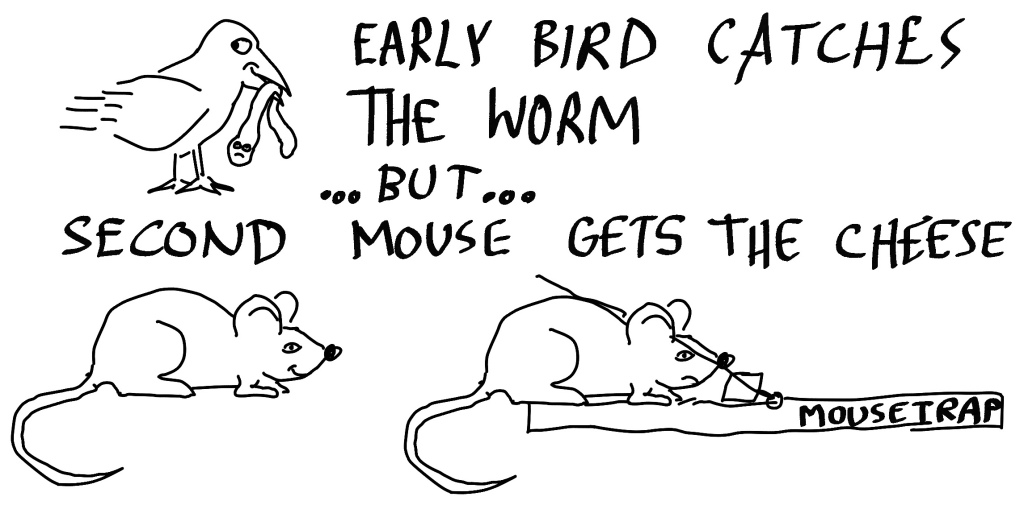 EARLY BIRD CATCHES
THE WORM
...BUT...
SECOND MOUSE GETS THE CHEESE
MOUSETRAP